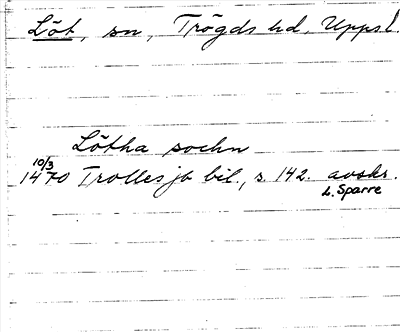 Löt, sn, Trögds hd, Upps l.
Lötha sochn
10/3
1470 Trolles jb bil., s. 142. avskr.
L. Sparre